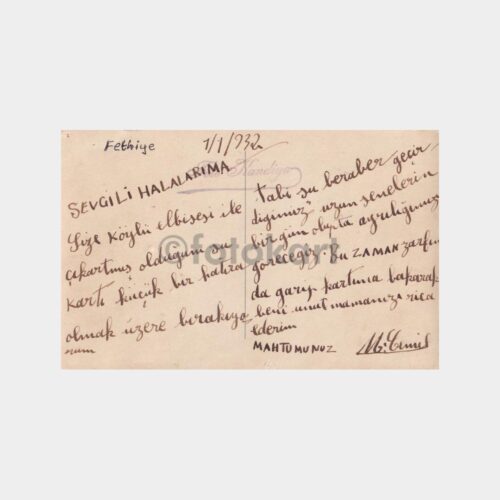 Fethiye
1/1/932
SEVGİLİ HALALARIMA
Size Köylü elbisesi ile
çıkartmış olduğum şu
kartı küçük bir hatıra
olmak üzere bırakıyo
rum
tabi şu beraber geçir
diğimiz uzun senelerin
birgün olupta ayrılığımızı
göreceğiz. Bu ZAMAN zarfın
da garip kartıma bakarak
beni unutmamanızı rica
ederim
MAHTUMUNUZ
M. Cemil
©fotokart